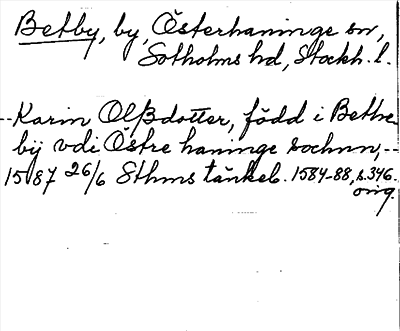 Betby, by, Österhaninge sn,
Sotholms hd, Stockh. l.
--Karin Olßdotter, född i Bethe
bij vdi Östre haninge sochnn,--
1587 26/6 Sthms tänkeb. 1584-88, s. 346.
orig.